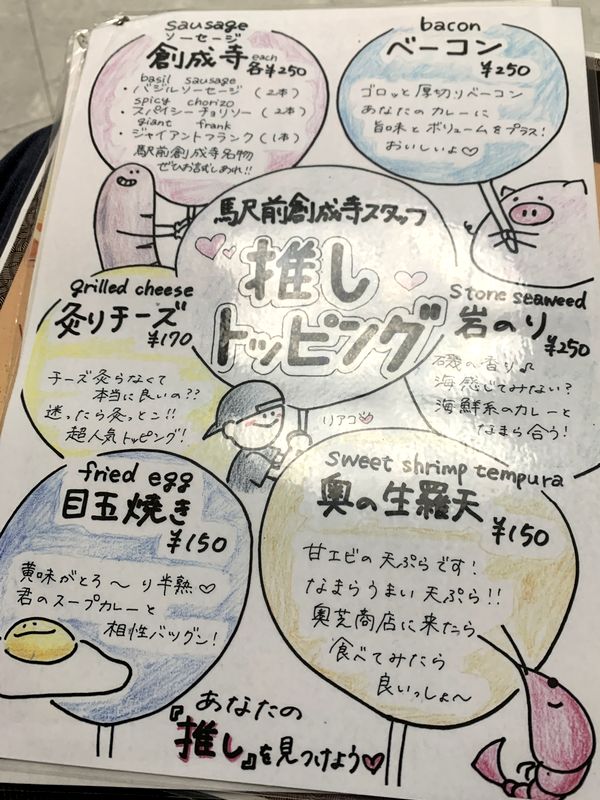 sausage
ソーセージ
創成寺 each 各¥250
basil sausage
・バジルソーセージ(2本)
spicy chorizo
・スパイシーチョリソー(2本)
giant frank
・ジャイアントフランク(1本)
駅前創成寺名物
ぜひお試しあれ!!
bacon
ベーコン
¥250
ゴロッと厚切りベーコン
あなたのカレーに
旨味とボリュームをプラス!
おいしいよ♡
駅前創成寺スタッフ
推し
トッピング
grilled cheese
炙りチーズ
¥170
チーズ炙らなくて
本当に良いの??
迷ったら炙っとこ!!
超人気トッピング!
Stone seaweed
岩のり
¥250
磯の香り♪
海感じてみない?
海鮮系のカレーと
なまら合う!
リアコ♡
fried egg
目玉焼き
¥150
黄味がとろ〜り半熟♡
君のスープカレーと
相性バツグン!
sweet shrimp tempura
奥の生羅天
¥150
甘エビの天ぷらです!
なまらうまい天ぷら!!
奥芝商店に来たら
食べてみたら
良いっしょ〜
あなたの
『推し』を見つけよう♡